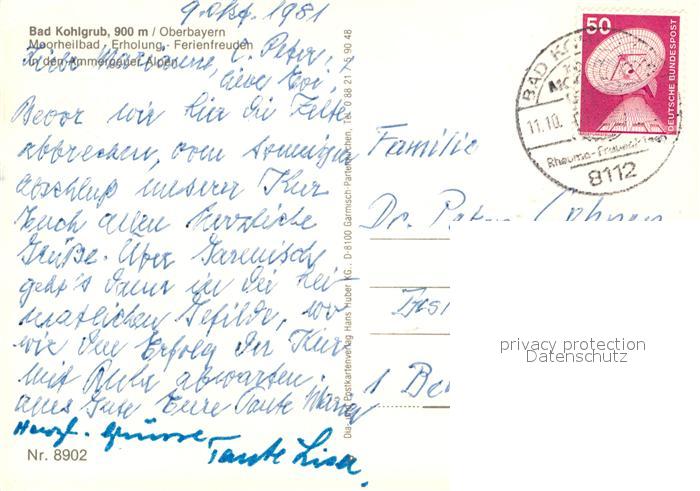 9. Okt. 1981
Bad Kohlgrub, 900 m / Oberbayern
Moorheilbad - Erholung - Ferienfreuden
in den Ammergauer Alpen
Liebe Marianne, l. Peter,
liebe Evi,
Bevor wir hier die Zelte
abbrechen, vom sonnigen
Abschluß unserer Kur
Euch allen herzliche
Grüße. Über Garmisch
geht's dann in die hei-
matlichen Gefilde, wo
wir den Erfolg der Kur
mit Ruhe abwarten.
Alles Gute Eure Tante
Herzl. Grüsse
Tante Lisa.
Nr. 8902
Postkartenverlag Hans Huber KG., D-8100 Garmisch-Partenkirchen, Tel. 0 88 21
50
DEUTSCHE BUNDESPOST
BAD
11.10.
Rheuma-Frauenleiden
8112
Familie
Dr. Peter
1 Be
privacy protection
Datenschutz